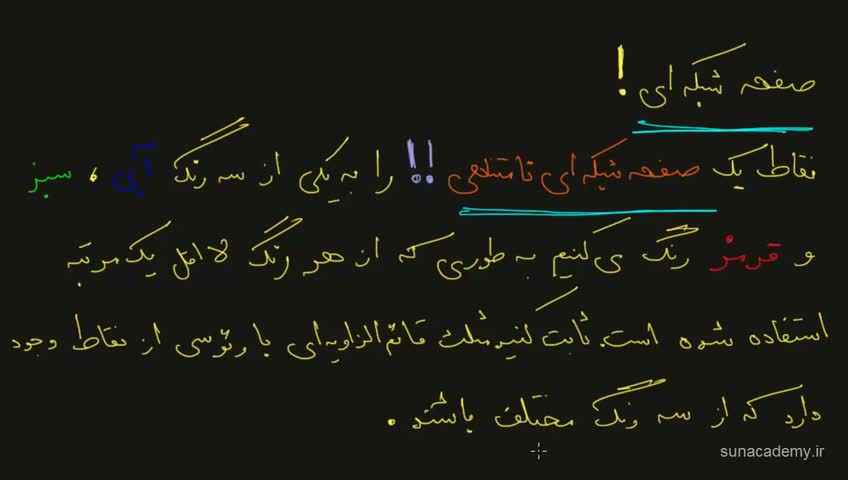 صفحه شبکه ای !
نقاط یک صفحه شبکه ای نامتناهی !! را به یکی از سه رنگ آبی ، سبز
و قرمز رنگ می کنیم به طوری که از هر رنگ لااقل یک مرتبه
استفاده شده است. ثابت کنید مثلث قائم الزاویه ای با رئوسی از نقاط وجود
دارد که از سه رنگ مختلف باشند .
sunacademy.ir